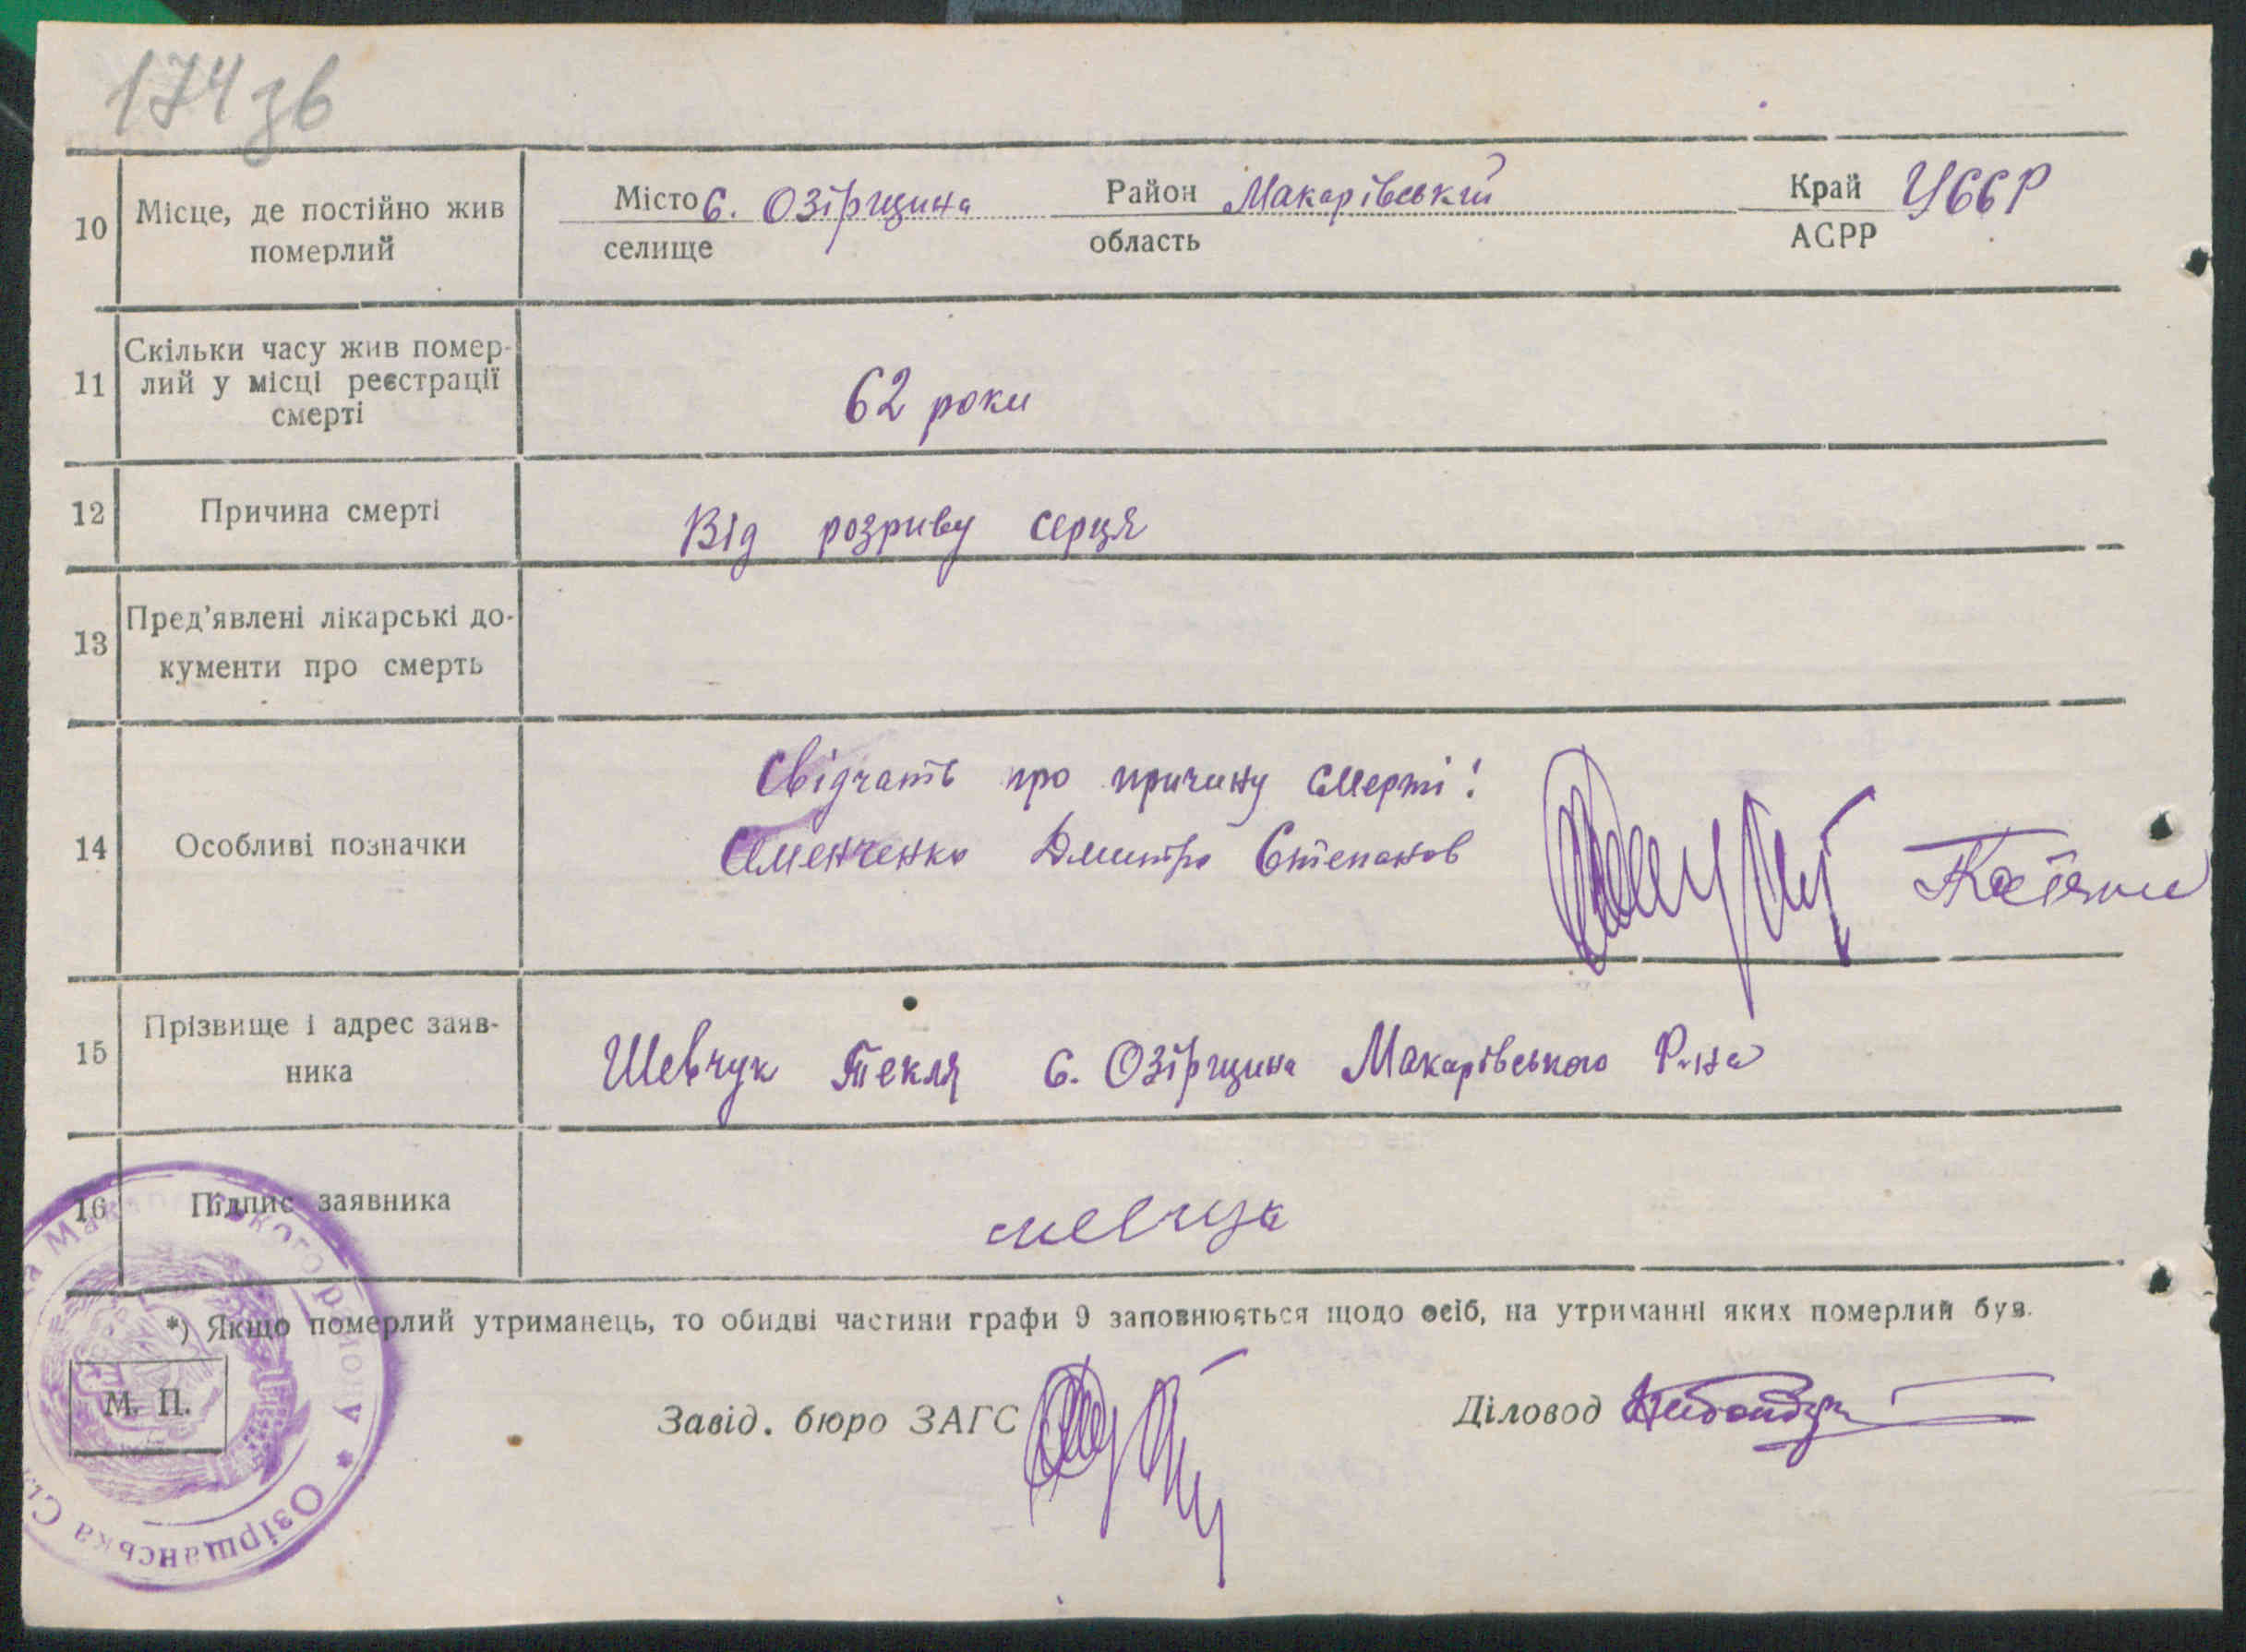 174 зв
10 Місце, де постійно жив померлий Місто с. Озірщина Район Макарівський Край УССР
селище область АСРР
11 Скільки часу жив помер-
лий у місці реєстрації
смерті
62 роки
12 Причина смерті Від розриву серця
13 Пред'явлені лікарські до-
кументи про смерть
14 Особливі позначки
Свідчать про причину смерті:
Семенченко Дмитро Степанов
15 Прізвище і адрес заяв-
ника
Шевчук Текля с. Озірщина Макарівського Р-на
16 Підпис заявника шевчук
*) Якщо померлий утриманець, то обидві частини графи 9 заповнюється щодо осіб, на утриманні яких померлий був.
М. П.
Завід. бюро ЗАГС
Діловод
Макарівського району * Озірщанська